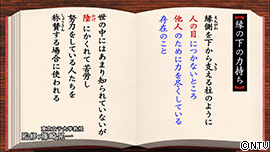 【縁の下の力持ち】
縁側を下から支える柱のように
人の目につかないところで
他人のために力を尽くしている
存在のこと
世の中にはあまり知られていないが
陰にかくれて苦労し
努力をしている人たちを
称賛する場合に使われる
©NTU